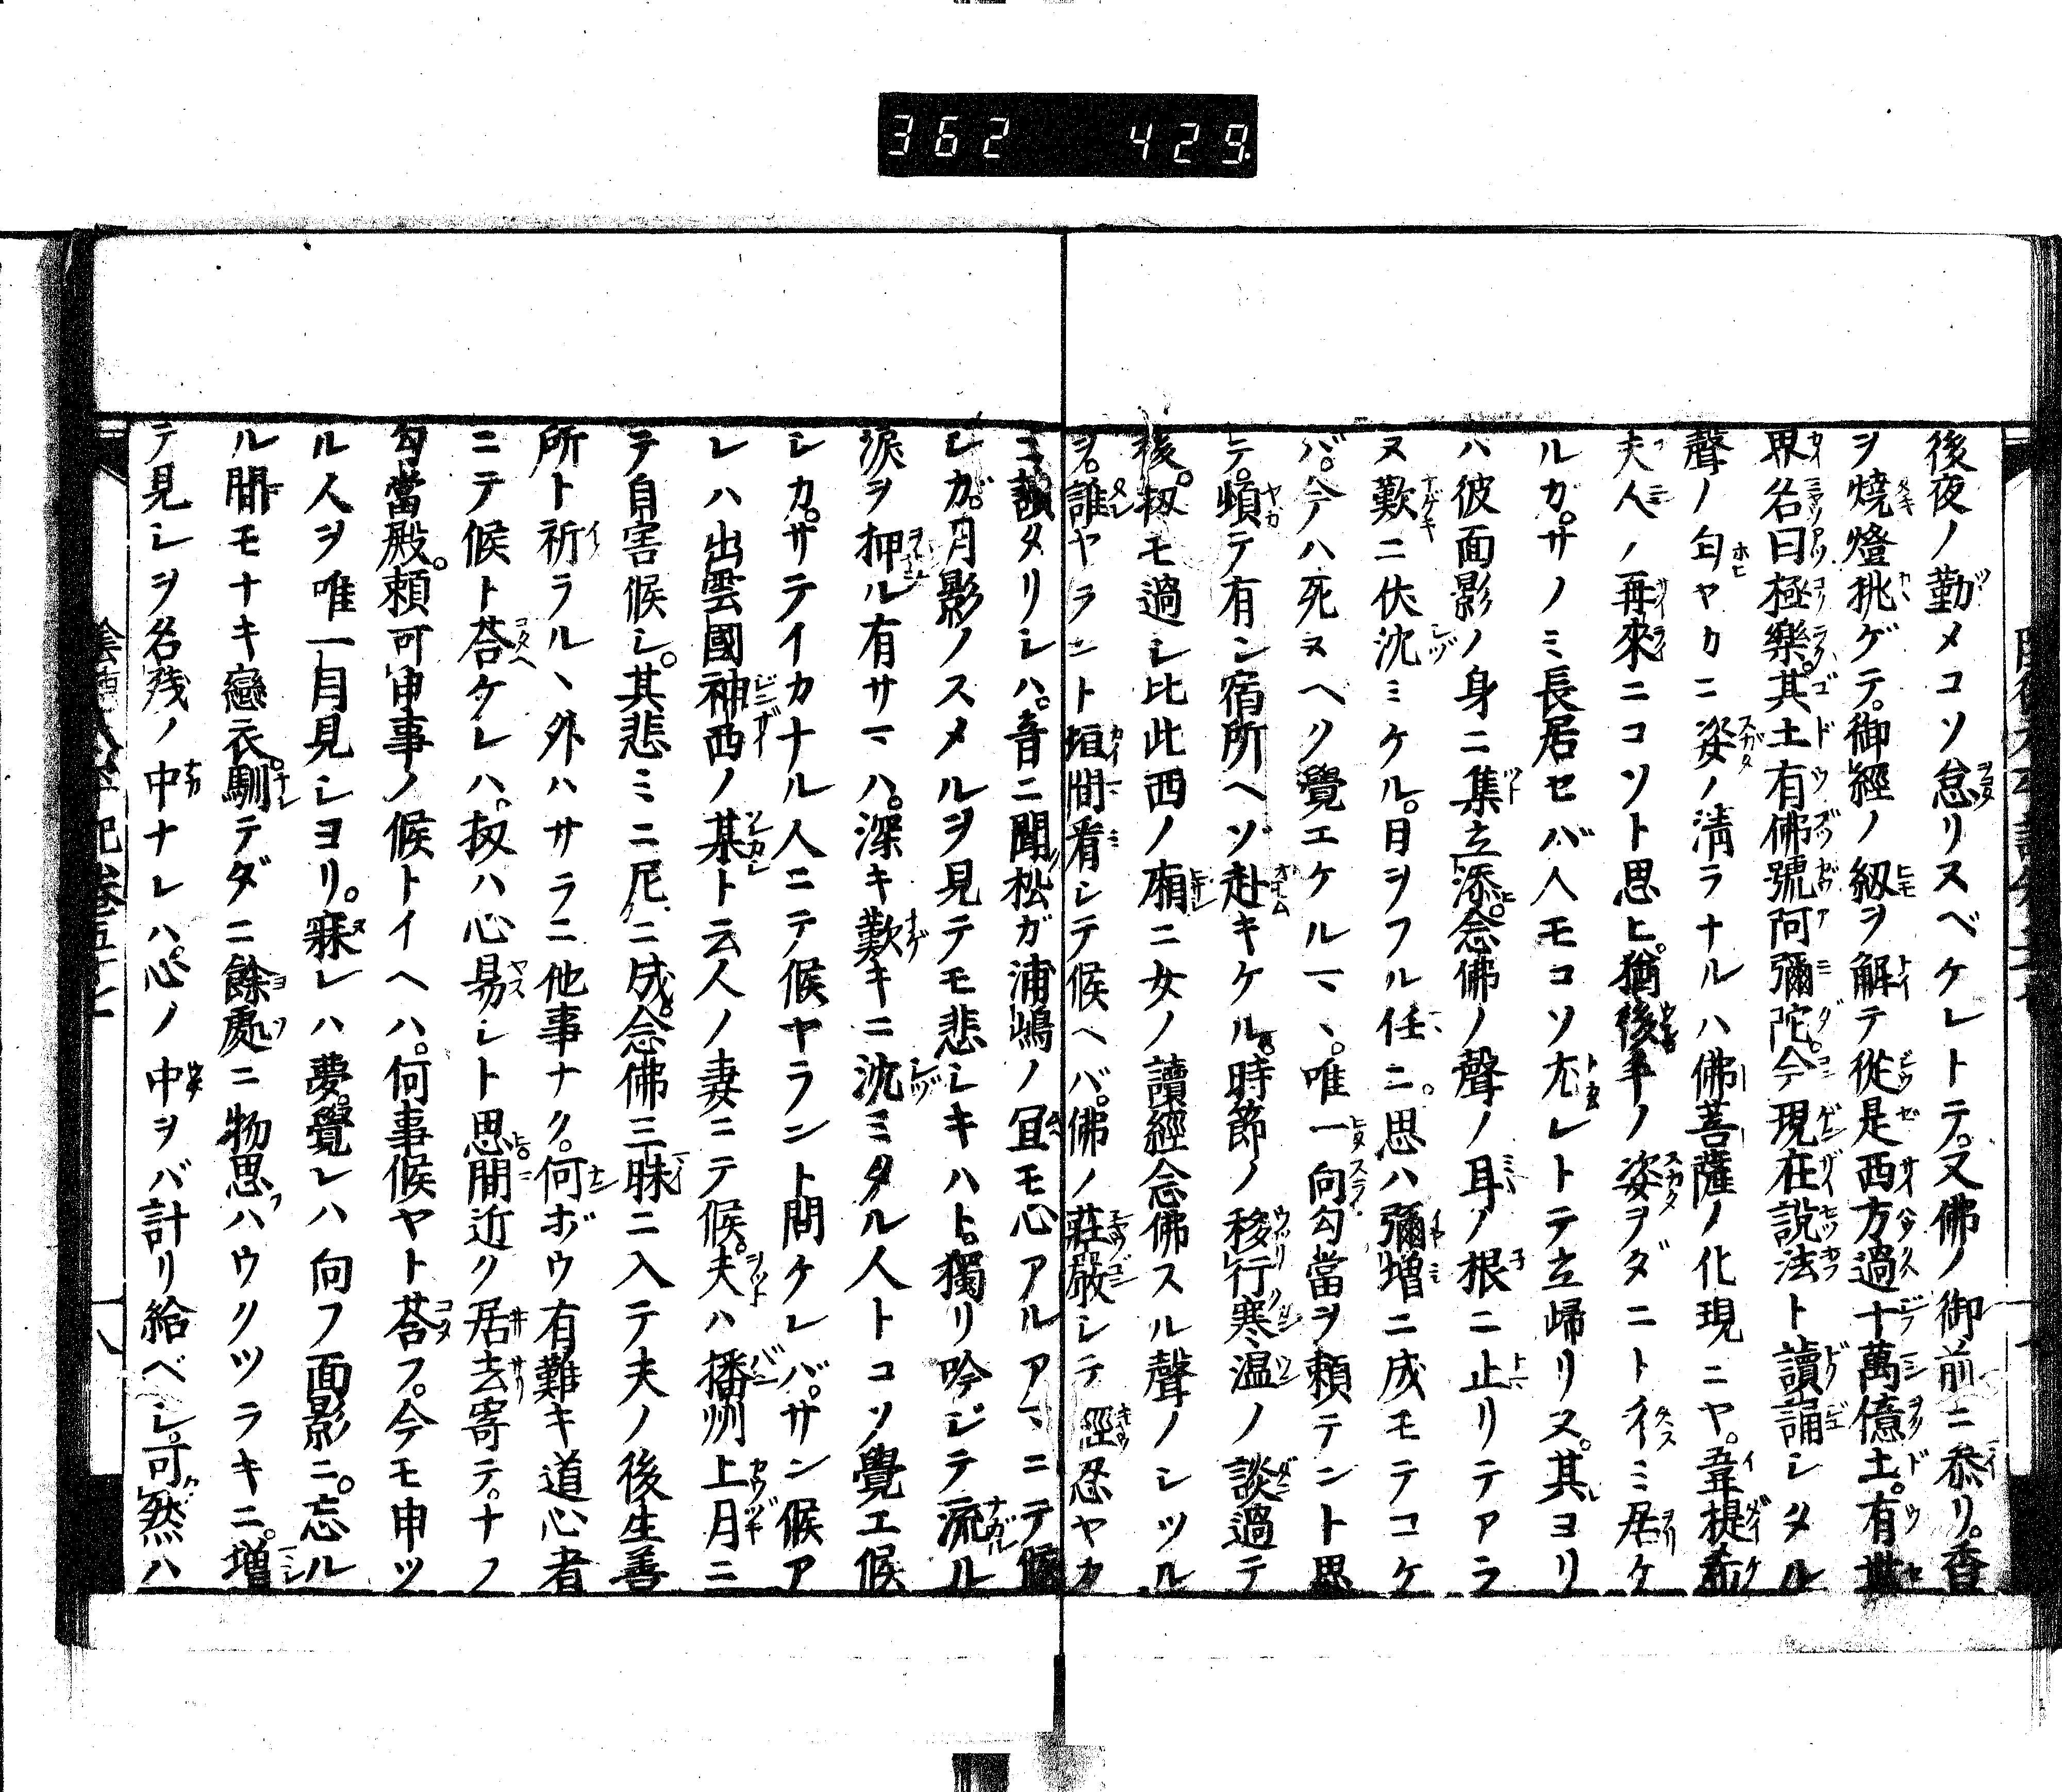 362 429
後夜ノ勤メコソ怠リヌベケレトテ。又佛ノ御前ニ参リ。香
ヲ燒燈挑ゲテ。御經ノ紐ヲ解テ從是西方過十萬億土。有世
界名曰極樂。其土有佛號阿彌陀。今現在說法ト讀誦シタル
聲ノ匂ヤカニ姿ノ淸ラナルハ佛菩薩ノ化現ニヤ。韋提希
夫人ノ再來ニコソト思ヒ。猶後手ノ姿ヲダニトイミ居ケ
ルカ。サノミ長居セバ人モコソ尤レトテ立帰リヌ。其ヨリ
ハ彼面影ノ身ニ集立添。念佛ノ聲ノ耳ノ根ニ止リテアラ
ヌ歎ニ伏沈ミケル。日ヲフル任ニ。思ハ彌增ニ成モテコケ
バ。今ハ死ヌヘク覺エケルマヽ。唯一向勾當ヲ頼テント思
テ。頓テ有シ宿所ヘゾ赴キケル。時節ノ移行寒温ノ談過テ
後。扨モ過シ比此西ノ廂ニ女ノ讀經念佛スル聲ノシツル
ヲ。誰ヤラント垣間看シテ候ヘバ。佛ノ莊嚴シテ經忍ヤカ
ニ讀タリシハ。音ニ聞松ガ浦嶋ノ冝モ心アルアマニテ候
シガ。月影ノスメルヲ見テモ悲シキハト。獨リ吟ジテ流ル
淚ヲ押ル有サマハ。深キ歎キニ沈ミタル人トコソ覺エ候
シカ。サテイカナル人ニテ候ヤラント問ケレバ。サン候ア
レハ出雲國神西ノ某ト云人ノ妻ニテ候。夫ハ播州上月ニ
テ自害候シ。其悲ミニ尼ニ成。念佛三昧ニ入テ夫ノ後生善
所ト祈ラルヽ外ハサラニ他事ナク。何ボウ有難キ道心者
ニテ候ト荅ケレハ。扨ハ心易シト思。間近ク居去寄テ。ナノ
勾當殿。頼可申事ノ候トイヘハ。何事候ヤト荅フ。今モ申ツ
ル人ヲ唯一目見シヨリ。寐レハ夢。覺レハ向フ面影ニ。忘ル
ル間モナキ戀衣。馴テダニ餘處ニ物思ハウクツラキニ。増
テ見シヲ名殘ノ中ナレハ。心ノ中ヲバ計リ給ベシ。可然ハ